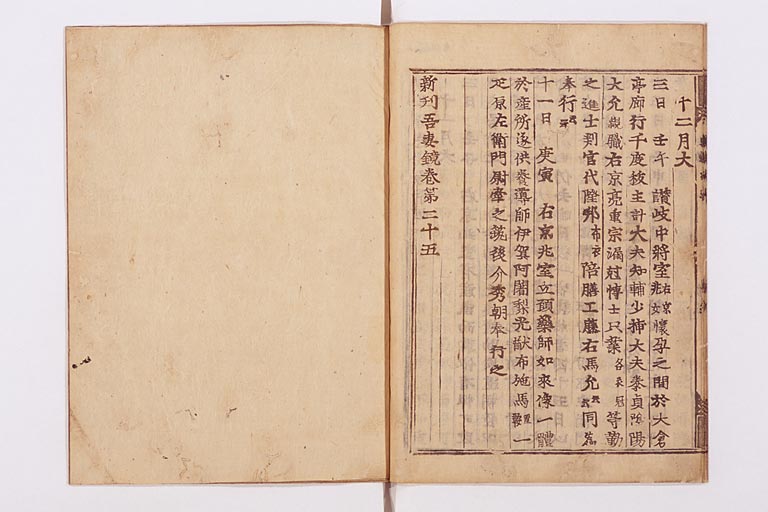 十二月大
三日 壬午 讃岐中將室右京兆女懷孕之間於大倉
亭廊行千度祓主計大夫知輔少掃大夫泰貞陰陽
大允親職右京亮重宗漏尅博士 業各束冠等勤
之進士判官代隆邦布衣陪膳工藤右馬允 同爲
奉行
十一日 庚寅 右京兆室立 藥師如來像一體
於産所遂供養導師伊賀阿闍梨光猷布施馬 一
疋原左衛門尉牽之筑後介秀朝奉行之
新刊吾妻鏡卷第二十五